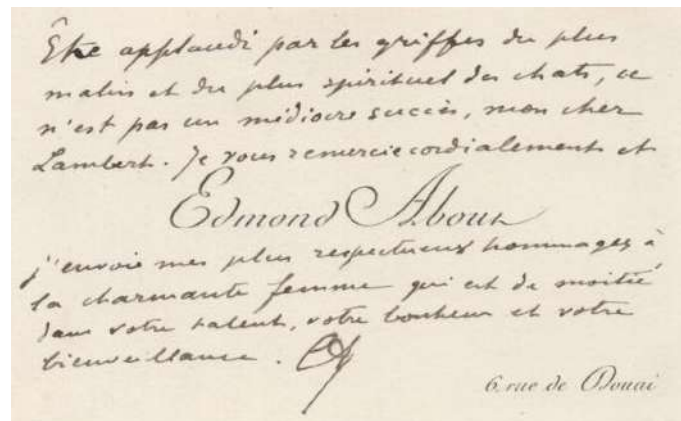 Être applaudi par les griffes du plus
malin et du plus spirituel des chats, ce
n'est pas un médiocre succès, mon cher
Lambert. Je vous remercie cordialement et
Edmond About
j'envoie mes plus respectueux hommages à
la charmante femme qui est de moitié
dans votre talent, votre bonheur et votre
bienveillance.
6, rue de Douai